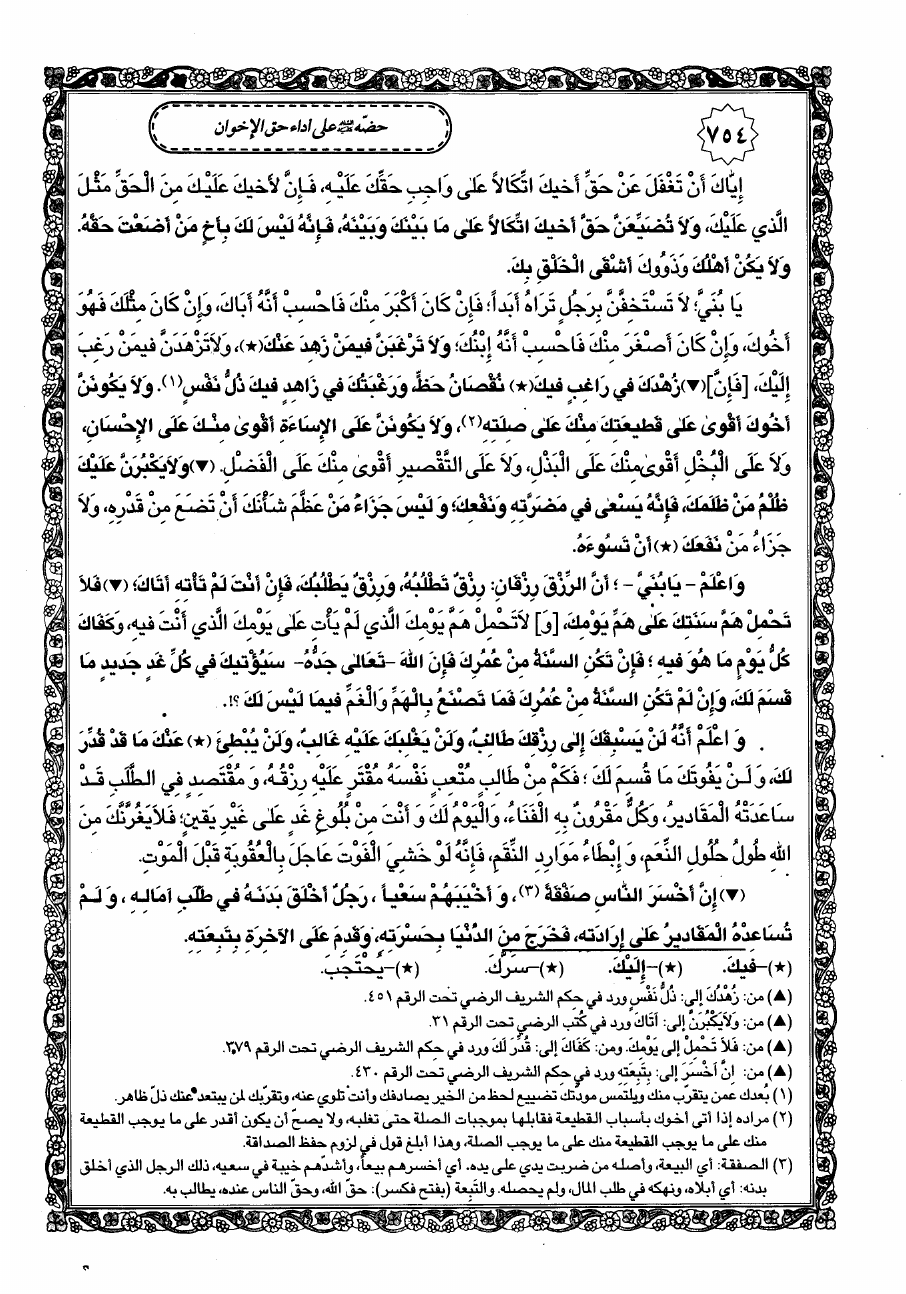 ٧٥٤
حضّه ﷺ على أداء حق الإخوان
إيّاكَ أنْ تَغْفَلَ عَنْ حَقِّ أخيكَ اتِّكَالاً عَلى وَاجِبِ حَقِّكَ عَلَيْهِ، فَإنَّ لأخيكَ عَلَيْكَ مِنَ الْحَقِّ مَثْلَ
الَّذي عَلَيْكَ، وَلاَ تُضَيِّعَنَّ حَقَّ أخيكَ اتِّكَالاً عَلى مَا بَيْنَكَ وَبَيْنَهُ، فَإنَّهُ لَيْسَ لَكَ بِأخٍ مَنْ أضَعْتَ حَقَّهُ.
وَلاَ يَكُنْ أهْلُكَ وَذَوُوكَ أشْقَى الْخَلْقِ بِكَ.
يَا بُنَيَّ؛ لاَ تَسْتَخِفَّنَّ بِرَجُلٍ تَرَاهُ أبَداً؛ فَإنْ كَانَ أكْبَرَ مِنْكَ فَاحْسِبْ أنَّهُ أبَاكَ، وَإنْ كَانَ مِثْلَكَ فَهُوَ
أخُوكَ، وَإنْ كَانَ أصْغَرَ مِنْكَ فَاحْسِبْ أنَّهُ إبْنُكَ؛ وَلاَ تَرْغَبَنَّ فيمَنْ زَهِدَ عَنْكَ(★)، وَلاَتَزْهَدَنَّ فيمَنْ رَغِبَ
إلَيْكَ، [فَإنَّ](▼)زُهْدَكَ في رَاغِبٍ فيكَ(★) نُقْصَانُ حَظٍّ، وَرَغْبَتُكَ في زَاهِدٍ فيكَ ذُلُّ نَفْسٍ(١). وَلاَ يَكُونَنَّ
أخُوكَ أقْوى عَلى قَطيعَتِكَ مِنْكَ عَلى صِلَتِهِ(٢)، وَلاَ يَكُونَنَّ عَلَى الإسَاءَةِ أقْوى مِنْكَ عَلَى الإحْسَانِ،
وَلاَ عَلَى الْبُخْلِ أقْوى مِنْكَ عَلَى الْبَذْلِ، وَلاَ عَلَى التَّقْصيرِ أقْوى مِنْكَ عَلَى الْفَضْلِ. (▼)وَلاَيَكْبُرَنَّ عَلَيْكَ
ظُلْمُ مَنْ ظَلَمَكَ، فَإنَّهُ يَسْعى في مَضَرَّتِهِ وَنَفْعِكَ؛ وَ لَيْسَ جَزَاءُ مَنْ عَظَّمَ شَأْنَكَ أنْ تَضَعَ مِنْ قَدْرِهِ، وَلاَ
جَزَاءُ مَنْ نَفَعَكَ (★)أنْ تَسُوءَهُ.
وَاعْلَمْ - يَابُنَيَّ - ؛ أنَّ الرِّزْقَ رِزْقَانِ: رِزْقٌ تَطْلُبُهُ، وَرِزْقٌ يَطْلُبُكَ، فَإنْ أنْتَ لَمْ تَأْتِهِ أتَاكَ؛ (▼)فَلاَ
تَحْمِلْ هَمَّ سَنَتِكَ عَلى هَمِّ يَوْمِكَ، [و] لاَتَحْمِلْ هَمَّ يَوْمِكَ الَّذي لَمْ يَأْتِ عَلى يَوْمِكَ الَّذي أنْتَ فيهِ، وَكَفَاكَ
كُلُّ يَوْمٍ مَا هُوَ فيهِ ؛ فَإنْ تَكُنِ السَّنَةُ مِنْ عُمُرِكَ فَإنَ اللهَ -تَعَالى جَدُّهُ- سَيُؤْتيكَ في كُلِّ غَدٍ جَديدٍ مَا
قَسَمَ لَكَ، وَإنْ لَمْ تَكُنِ السَّنَةُ مِنْ عُمُرِكَ فَمَا تَصْنَعُ بِالْهَمِّ وَالْغَمِّ فيمَا لَيْسَ لَكَ ؟!.
وَ اعْلَمْ أنَّهُ لَنْ يَسْبِقَكَ إلى رِزْقِكَ طَالِبٌ، وَلَنْ يَغْلِبَكَ عَلَيْهِ غَالِبٌ، وَلَنْ يُبْطِئَ (★) عَنْكَ مَا قَدْ قُدِّرَ
لَكَ، وَ لَـنْ يَفُوتَكَ مَا قُسِمَ لَكَ ؛ فَكَمْ مِنْ طَالِبٍ مُتْعِبٍ نَفْسَهُ مُقْتَرٍ عَلَيْهِ رِزْقُهُ، وَ مُقْتَصِدٍ فِي الطَّلَبِ قَـدْ
سَاعَدَتْهُ الْمَقَاديرُ، وَكُلٌّ مَقْرُونٌ بِهِ الْفَنَاءُ، وَالْيَوْمُ لَكَ وَ أنْتَ مِنْ بُلُوغِ غَدٍ عَلى غَيْرِ يَقينٍ؛ فَلاَيَغُرَّنَّكَ مِنَ
اللهِ طُولُ حُلُولِ النِّعَمِ، وَ إبْطَاءُ مَوَارِدِ النِّقَمِ، فَإنَّهُ لَوْ خَشِيَ الْفَوْتَ عَاجَلَ بِالْعُقُوبَةِ قَبْلَ الْمَوْتِ.
(▼) إنَّ أخْسَرَ النَّاسِ صَفْقَةً (٣)، وَ أخْيَبَهُمْ سَعْياً ، رَجُلٌ أخْلَقَ بَدَنَهُ في طَلَبِ آمَالِهِ ، وَ لَـمْ
تُسَاعِدْهُ الْمَقَاديرُ عَلى إرَادَتِهِ، فَخَرَجَ مِنَ الدُّنْيَا بِحَسْرَتِهِ، وَقَدِمَ عَلَى الآخِرَةِ بِتَبِعَتِهِ.
(★)-فيكَ. (★)-إلَيْكَ. (★)-سَرَّكَ. (★)-يَحْتَجِبَ.
(▲) من: زُهْدُكَ إلى: ذُلُّ نَفْسٍ ورد في حكم الشريف الرضي تحت الرقم ٤٥١.
(▲) من: وَلاَيَكْبُرَنَّ إلى: أتَاكَ ورد في كُتب الرضي تحت الرقم ٣١.
(▲) من: فَلاَ تَحْمِلْ إلى يَوْمِكَ. ومن: كَفَاكَ إلى: قُدِّرَ لَكَ ورد في حكم الشريف الرضي تحت الرقم ٣٧٩.
(▲) من: إنَّ أخْسَرَ إلى: بِتَبِعَتِهِ ورد في حكم الشريف الرضي تحت الرقم ٤٣٠.
(١) بُعدك عمن يتقرّب منك ويلتمس مودّتك تضييع لحظ من الخير يصادفك وأنت تلوي عنه، وتقرّبك لمن يبتعد عنك ذلّ ظاهر.
(٢) مراده إذا أتى أخوك بأسباب القطيعة فقابلها بموجبات الصلة حتى تغلبه، ولا يصحّ أن يكون أقدر على ما يوجب القطيعة
منك على ما يوجب القطيعة منك على ما يوجب الصلة، وهذا أبلغ قول في لزوم حفظ الصداقة.
(٣) الصفقة: أي البيعة، وأصله من ضربت يدي على يده. أي أخسرهم بيعاً، وأشدّهم خيبة في سعيه، ذلك الرجل الذي أخلق
بدنه: أي أبلاه، ونهكه في طلب المال، ولم يحصله. والتَّبِعة (بفتح فكسر): حقّ الله، وحقّ الناس عنده، يطالب به.